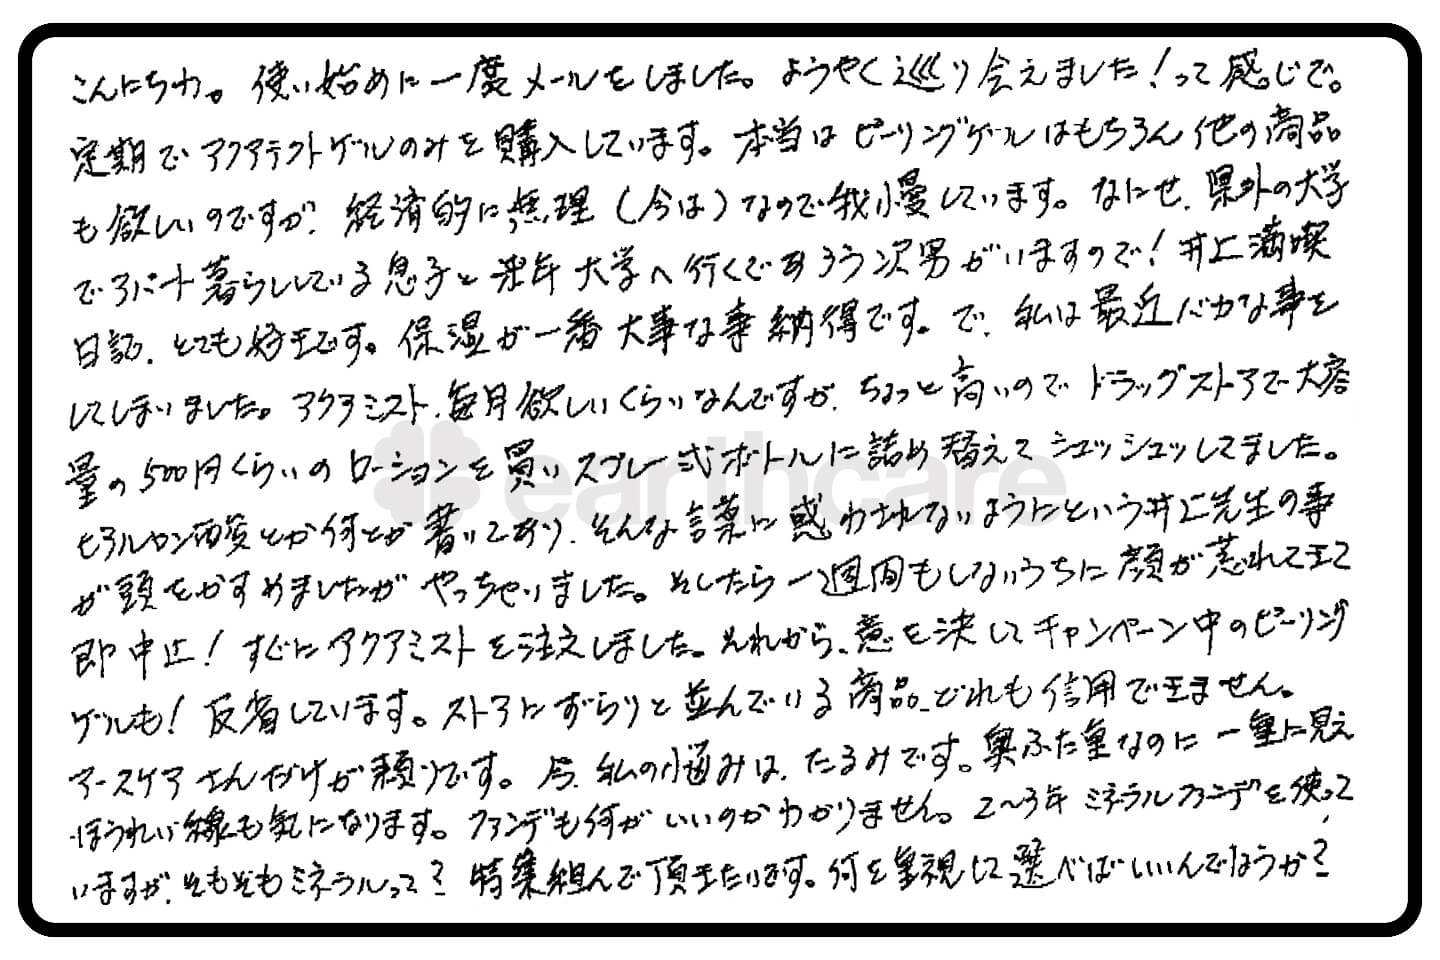 こんにちわ。使い始めに一度メールをしました。ようやく巡り会えました！って感じで。
定期でアクアテクトゲルのみを購入しています。本当はピーリングゲールはもちろん他の商品
も欲しいのですが、経済的に無理（今は）なので我慢しています。なにせ、県外の大学
でアパート暮らししている息子と来年大学へ行くであろう次男がいますので！井上満喫
日記、とても好きです。保湿が一番大事な事納得です。で、私は最近バカな事を
してしまいました。アクアミスト、毎月欲しいくらいなんですが、ちょっと高いのでドラッグストアで大容
量の500円くらいのローションを買いスプレー式ボトルに詰め替えてシュッシュッしてました。
ヒアルロン酸とか何とか書いてあり、そんな言葉に惑わされないようにという井上先生の事
が頭をかすめましたがやっちゃいました。そしたら一週間もしないうちに顔が荒れてきて
即中止！すぐにアクアミストを注文しました。それから、意を決してキャンペーン中のピーリング
ゲルも！反省しています。ストアにずらりと並んでいる商品、どれも信用できません。
アースケアさんだけが頼りです。今、私の悩みは、たるみです。奥ふた重なのに一重に見え
ほうれい線も気になります。ファンデも何がいいのかわかりません。2〜3年ミネラルファンデを使って
いますが、そもそもミネラルって？特集組んで頂きたいです。何を重視して選べばいいんでしょうか？
earthcare